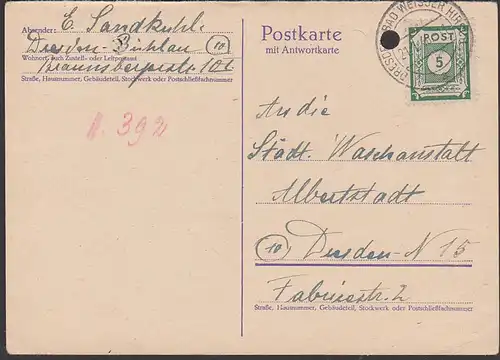 Absender: E. Sandkuhl
Dresden-Bühlau (10)
Wohnort, auch Zustell- oder Leitpostamt
Braunsbergerstr. 10b
Straße, Hausnummer, Gebäudeteil, Stockwerk oder Postschließfachnummer
392
Postkarte
mit Antwortkarte
BAD WEISSER HIRSCH
POST
5
An die
Städt. Waschanstalt
Albertstadt
(10) Dresden-N 15
Fabricestr. 2
Straße, Hausnummer, Gebäudeteil, Stockwerk oder Postschließfachnummer